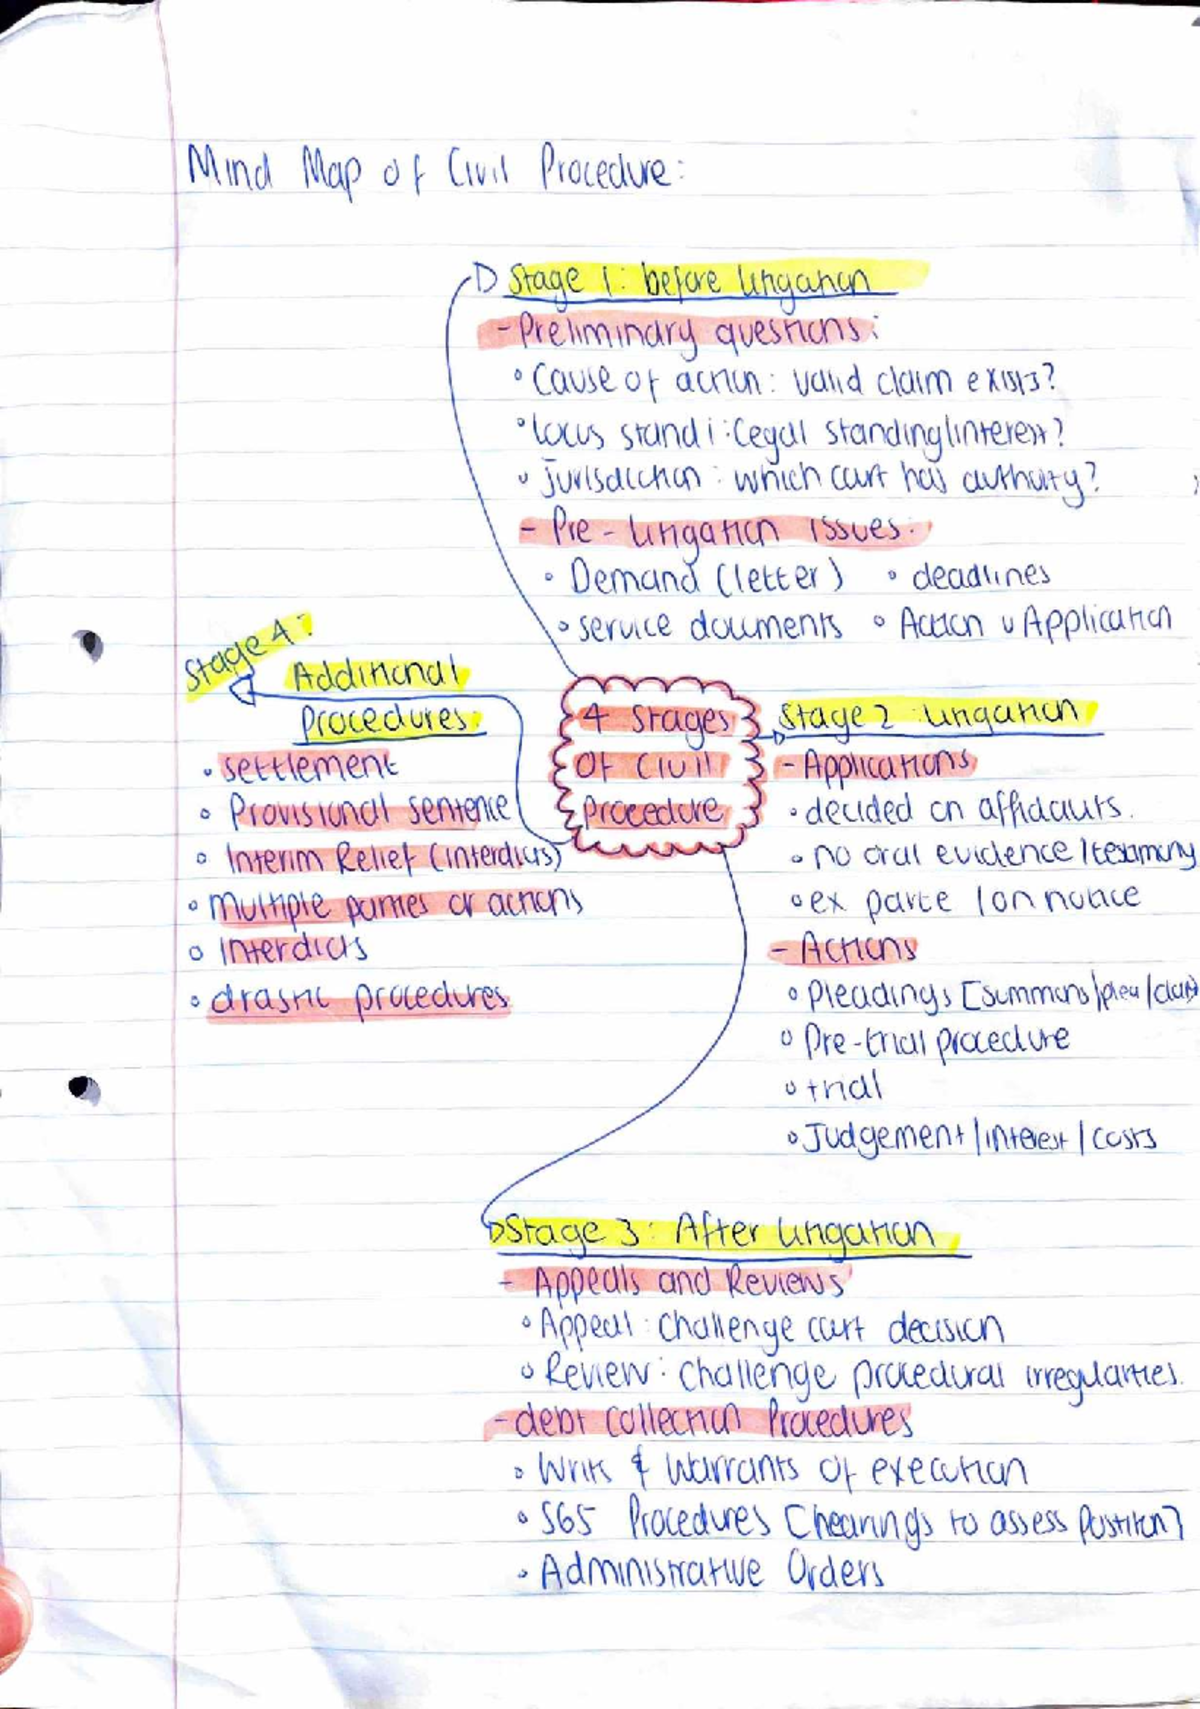 Mind Map of Civil Procedure:
Stage 1: before litigation
- Preliminary questions:
• Cause of action: valid claim exists?
• locus standi: Legal standing/interest?
• jurisdiction: which court has authority?
- Pre-litigation issues:
• Demand (letter) • deadlines
• service documents • Action v Application
Stage 4:
Additional
Procedures:
• settlement
• Provisional sentence
• Interim Relief (interdicts)
• multiple parties or actions
• Interdicts
• drastic procedures
4 Stages
Of Civil
Procedure
Stage 2: litigation
- Applications
• decided on affidavits.
• no oral evidence/testimony
• ex parte / on notice
- Actions
• Pleadings [summons/plea/
• Pre-trial procedure
• trial
• Judgement/interest/costs
Stage 3: After litigation
- Appeals and Reviews
• Appeal: challenge court decision
• Review: challenge procedural irregularities.
- debt collection Procedures
• Writs & Warrants of execution
• S65 Procedures [hearings to assess position]
• Administrative Orders